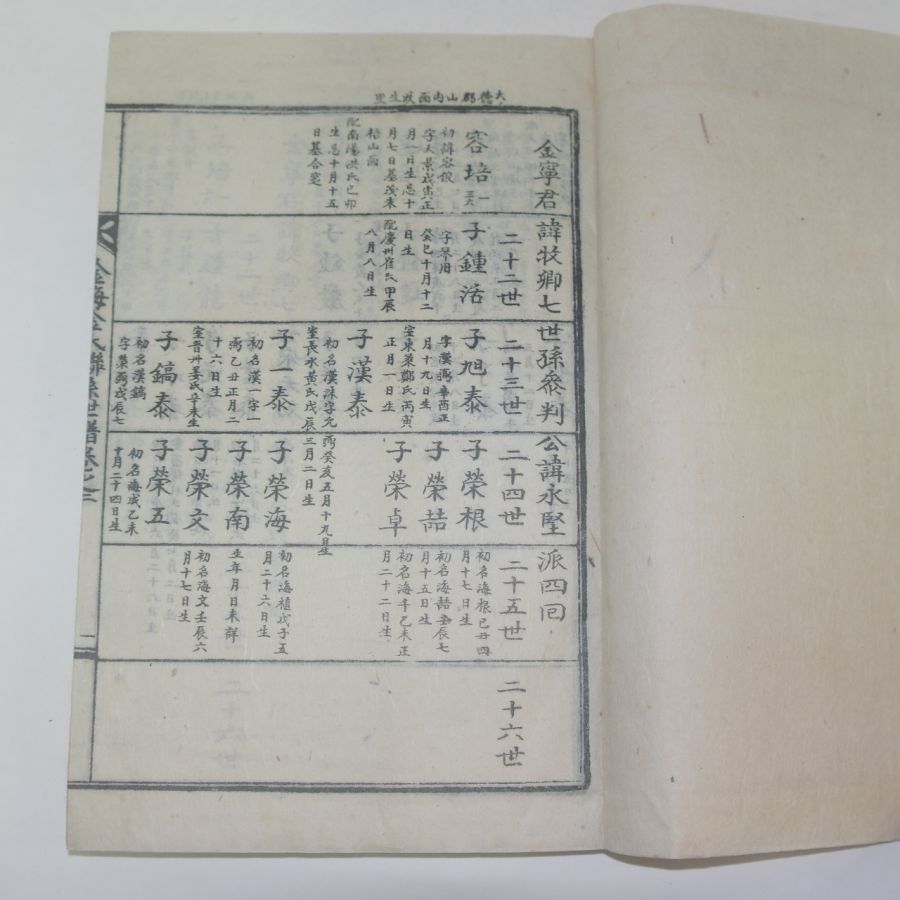 大德郡山內面政生里
金寧君諱牧卿七世孫參判公諱永堅派四回
容培
一
初諱容俊
字大景戊寅正
月一日生忌十
月七日墓茂朱
梧山面
配南陽洪氏己卯
生忌十月十五
日墓合窆
二十二世
子鍾活
字琴用
癸巳十月十二
日生
配慶州崔氏甲辰
八月八日生
二十三世
子旭泰
字漢彌辛酉正
月十九日生
室東萊鄭氏丙寅
正月一日生
子漢泰
初名漢洙字允
彌癸亥五月十九日生
室長水黃氏戊辰
三月二日生
子一泰
初名漢一字一
彌乙丑正月二
十六日生
室晉州姜氏辛未生
子鎬泰
初名漢鎬
字榮彌戊辰七
二十四世
子榮根
子榮喆
子榮卓
子榮海
子榮南
子榮文
子榮五
初名海成乙未
十月二十四日生
二十五世
初名海根己丑四
月十七日生
初名海喆壬辰七
月十五日生
初名海千乙未正
月二十二日生
初名海植戊子五
月二十六日生
生年月日未詳
初名海文壬辰六
月十七日生
二十六世
金海金氏聯孫世譜卷之三